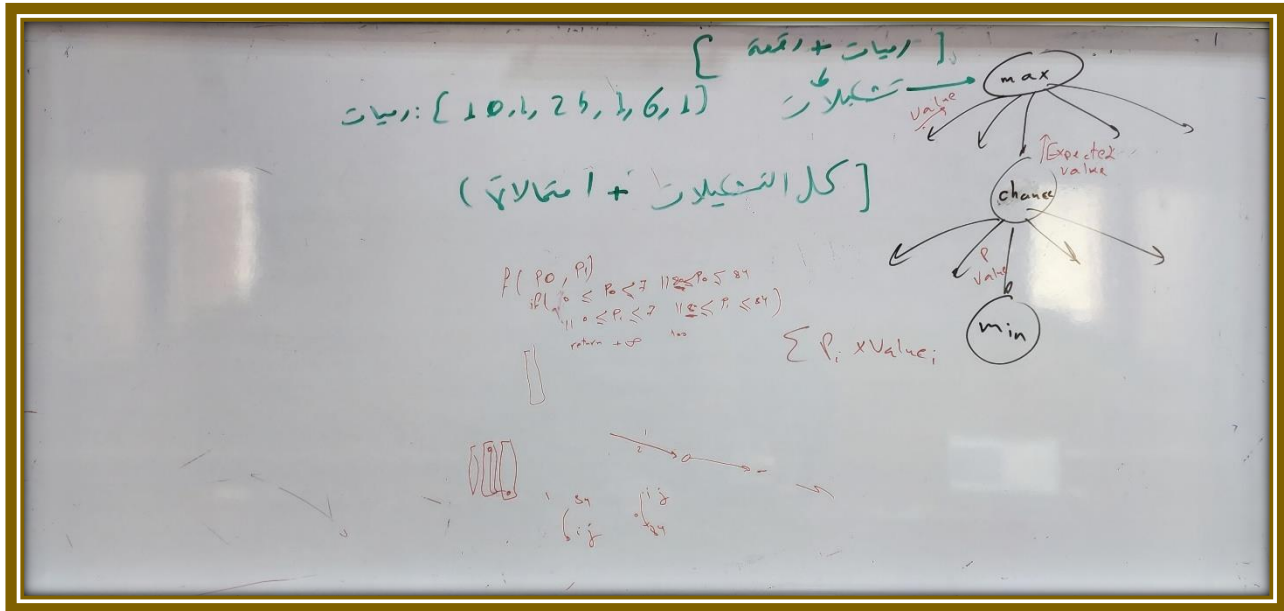 [ رميات + رقعة ]
تشكيلات
رميات: { 10, 1, 25, 1, 6, 1 ]
[ كل التشكيلات + احتمالاتها )
max
value
Expected
value
chance
P
value
min
f( P0, P1)
0 ≤ P0 ≤ 7
≤ P0 ≤ 84
|| 0 ≤ P1 ≤ 7 || ≤ P1 ≤ 84)
return +∞
∑ Pi × Valuei
1
2
84
ij
ij
84